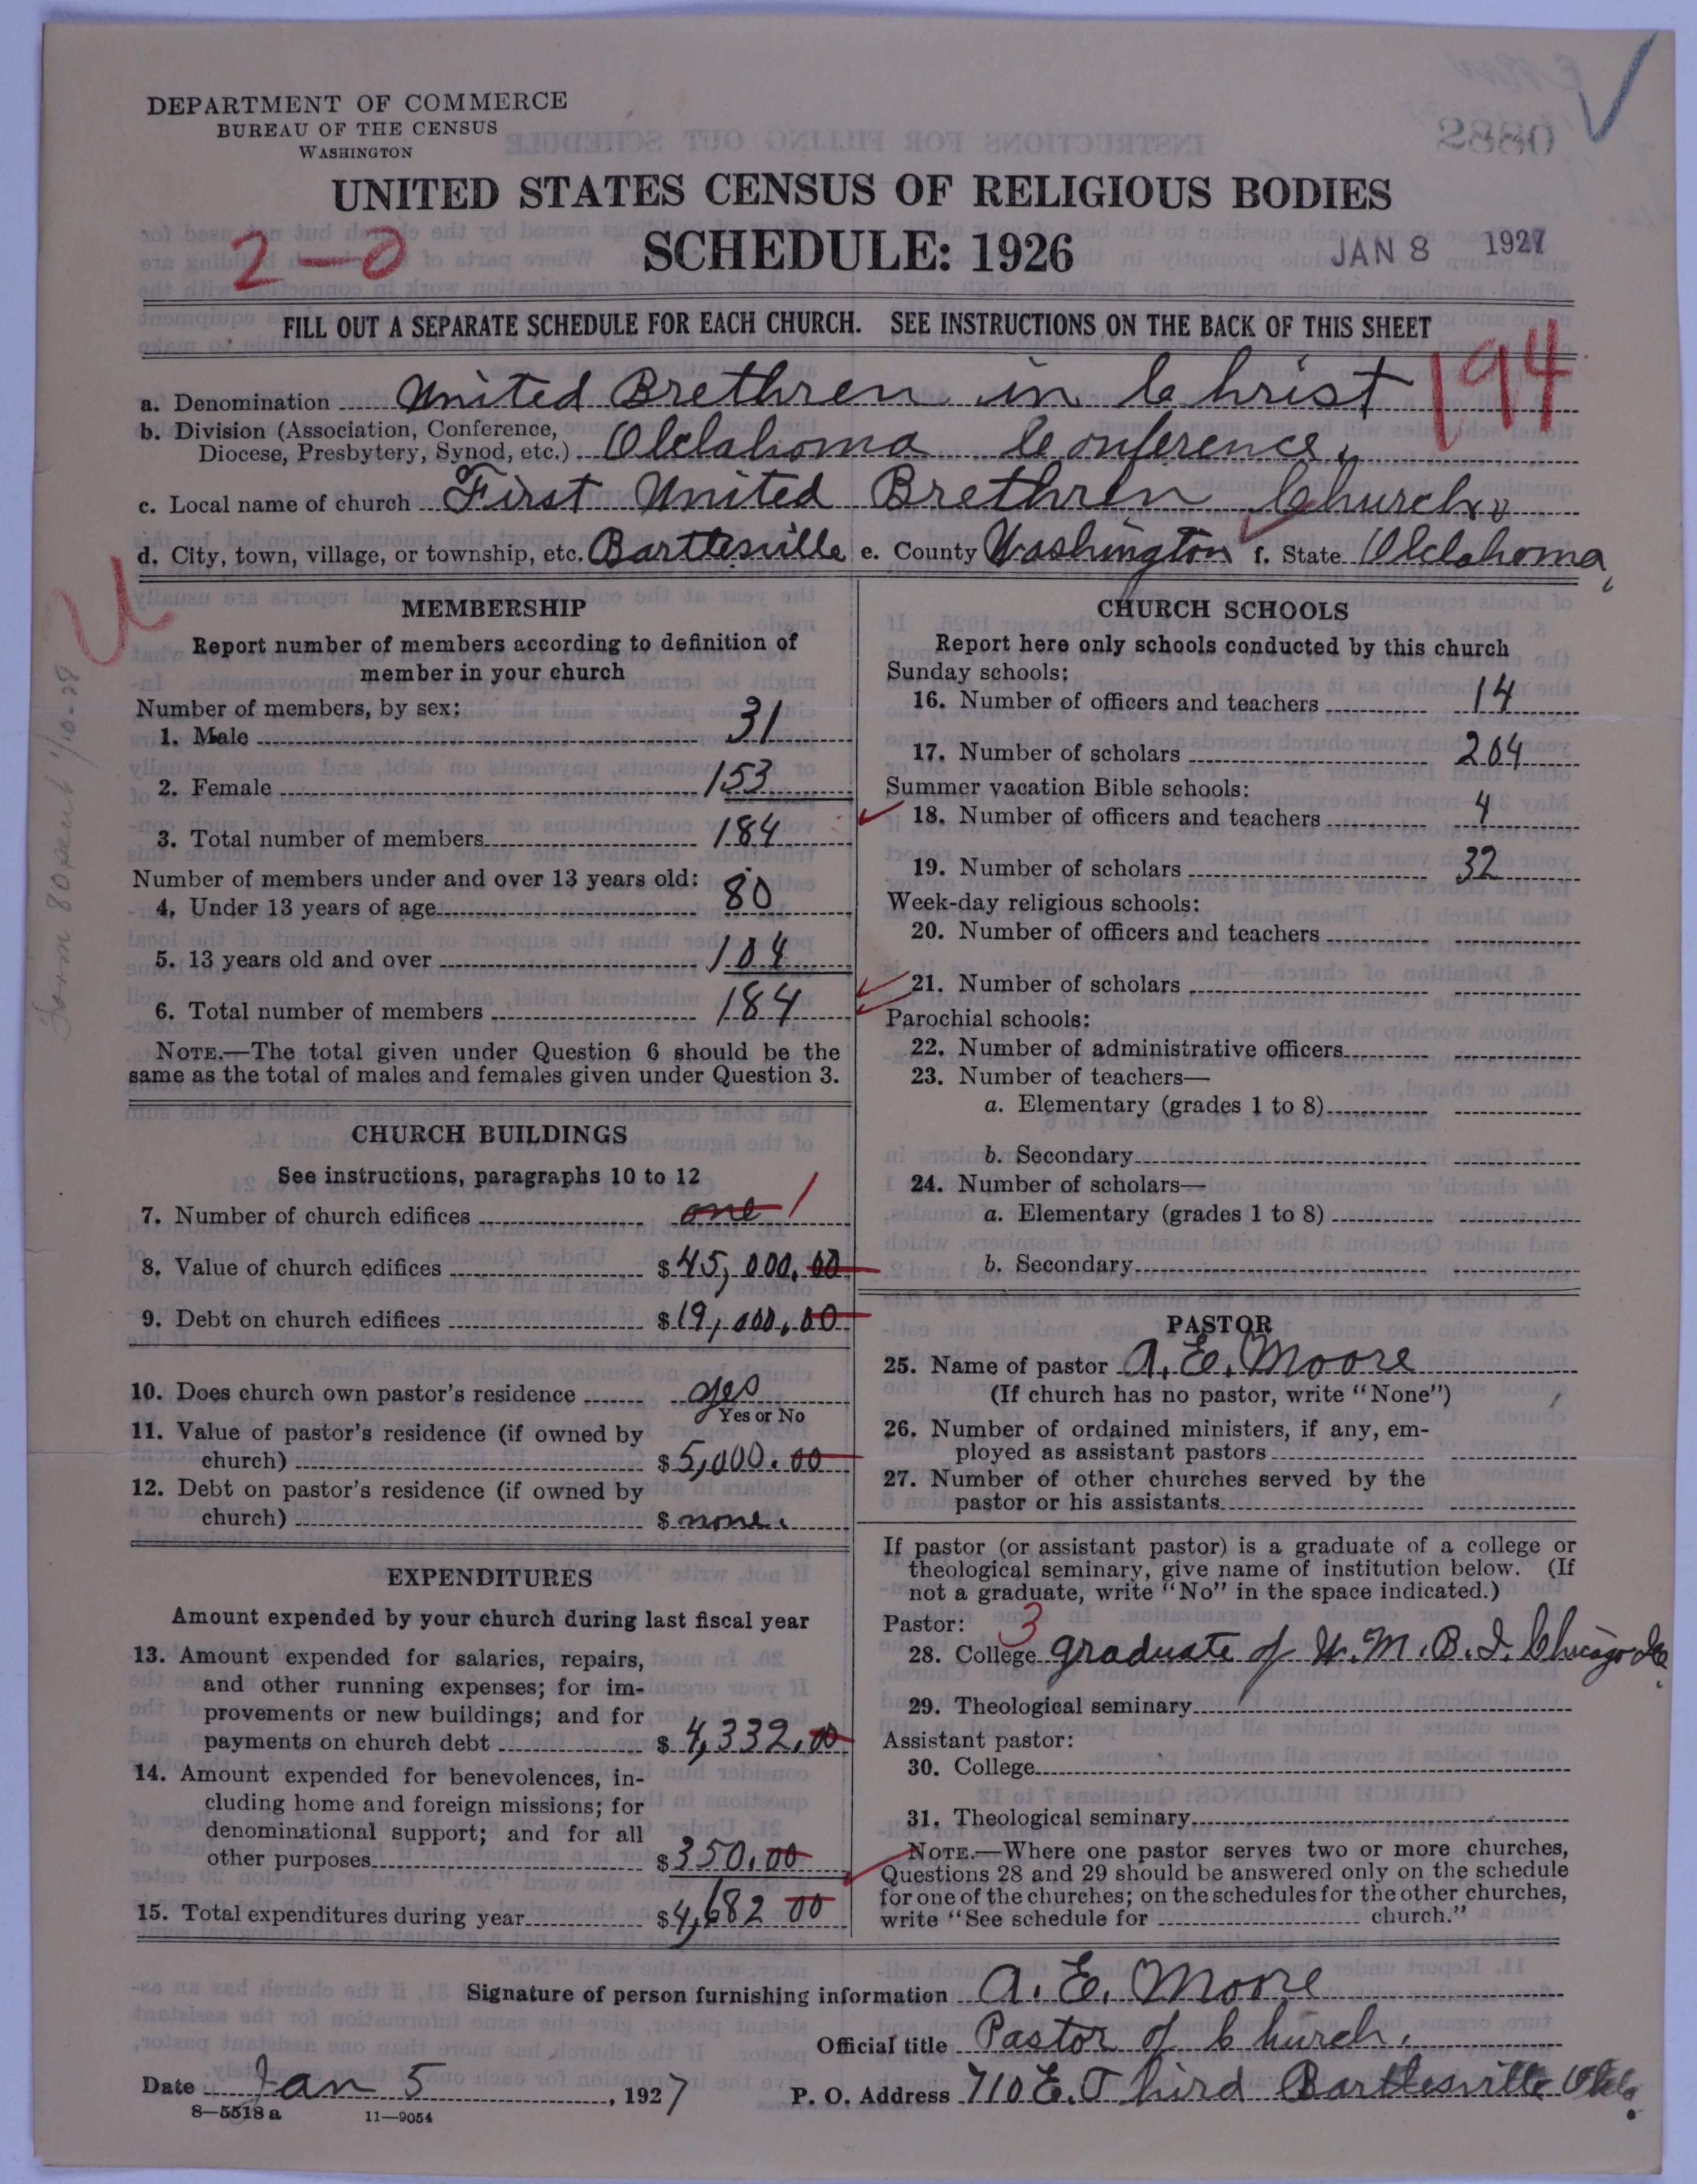 DEPARTMENT OF COMMERCE
BUREAU OF THE CENSUS
WASHINGTON
2880
UNITED STATES CENSUS OF RELIGIOUS BODIES
2-0
SCHEDULE: 1926
JAN 8 1927
FILL OUT A SEPARATE SCHEDULE FOR EACH CHURCH. SEE INSTRUCTIONS ON THE BACK OF THIS SHEET
194
a. Denomination United Brethren in Christ
b. Division (Association, Conference,
Diocese, Presbytery, Synod, etc.) Oklahoma Conference.
c. Local name of church First United Brethren Church
d. City, town, village, or township, etc. Bartlesville e. County Washington f. State Oklahoma
MEMBERSHIP
Report number of members according to definition of
member in your church
Number of members, by sex:
1. Male 31
2. Female 153
3. Total number of members 184
Number of members under and over 13 years old:
4. Under 13 years of age 80
5. 13 years old and over 104
6. Total number of members 184
NOTE.—The total given under Question 6 should be the
same as the total of males and females given under Question 3.
CHURCH BUILDINGS
See instructions, paragraphs 10 to 12
7. Number of church edifices one 1
8. Value of church edifices $ 45,000.00
9. Debt on church edifices $ 19,000.00
10. Does church own pastor's residence yes
Yes or No
11. Value of pastor's residence (if owned by
church) $ 5,000.00
12. Debt on pastor's residence (if owned by
church) $ none.
EXPENDITURES
Amount expended by your church during last fiscal year
13. Amount expended for salaries, repairs,
and other running expenses; for im-
provements or new buildings; and for
payments on church debt $ 4,332.00
14. Amount expended for benevolences, in-
cluding home and foreign missions; for
denominational support; and for all
other purposes $ 350.00
15. Total expenditures during year $ 4,682 00
CHURCH SCHOOLS
Report here only schools conducted by this church
Sunday schools:
16. Number of officers and teachers 14
17. Number of scholars 204
Summer vacation Bible schools:
18. Number of officers and teachers 4
19. Number of scholars 32
Week-day religious schools:
20. Number of officers and teachers
21. Number of scholars
Parochial schools:
22. Number of administrative officers
23. Number of teachers—
a. Elementary (grades 1 to 8)
b. Secondary
24. Number of scholars—
a. Elementary (grades 1 to 8)
b. Secondary
PASTOR
25. Name of pastor A. E. Moore
(If church has no pastor, write "None")
26. Number of ordained ministers, if any, em-
ployed as assistant pastors
27. Number of other churches served by the
pastor or his assistants
If pastor (or assistant pastor) is a graduate of a college or
theological seminary, give name of institution below. (If
not a graduate, write "No" in the space indicated.)
Pastor: 3
28. College graduate of M. B. I. Chicago
29. Theological seminary
Assistant pastor:
30. College
31. Theological seminary
NOTE.—Where one pastor serves two or more churches,
Questions 28 and 29 should be answered only on the schedule
for one of the churches; on the schedules for the other churches,
write "See schedule for church."
Signature of person furnishing information A. E. Moore
Official title Pastor of Church.
Date Jan 5, 1927 P. O. Address 710 E. Third Bartlesville Okla.
8—5518 a 11—9054